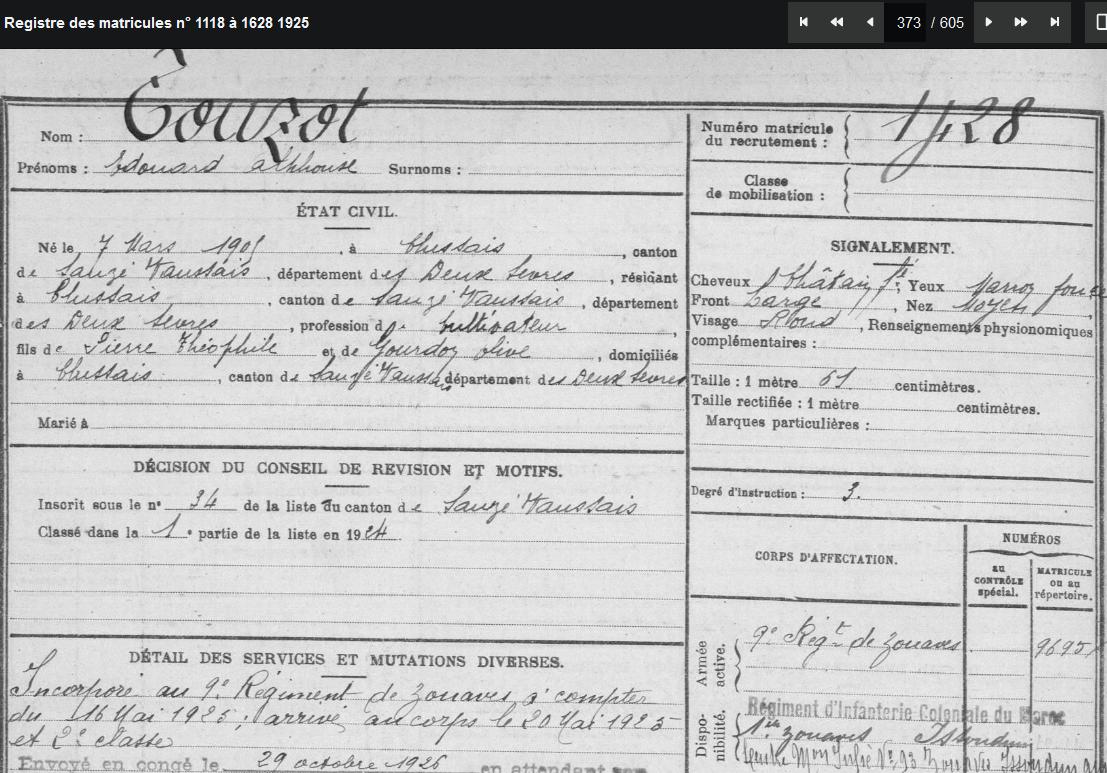 Registre des matricules n° 1118 à 1628 1925
373 / 605
Touzot
Nom :
Prénoms : Edouard Alphonse Surnoms :
Numéro matricule du recrutement : 1428
Classe de mobilisation :
ÉTAT CIVIL.
Né le 7 Mars 1905, à Clussais, canton
de Sauzé Vaussais, département des Deux Sevres, résidant
à Clussais, canton de Sauzé Vaussais, département
des Deux Sevres, profession de Cultivateur,
fils de Pierre Théophile et de Gourdon Olive, domiciliés
à Clussais, canton de Sauzé Vaussais département des Deux Sevres
Marié à
SIGNALEMENT.
Cheveux Châtain fé, Yeux Marron foncé
Front Large, Nez Moyen
Visage Rond, Renseignements physionomiques
complémentaires :
Taille : 1 mètre 61 centimètres.
Taille rectifiée : 1 mètre centimètres.
Marques particulières :
Degré d'instruction : 3.
DÉCISION DU CONSEIL DE REVISION ET MOTIFS.
Inscrit sous le n° 34 de la liste du canton de Sauzé Vaussais
Classé dans la 1e partie de la liste en 1924
CORPS D'AFFECTATION.
NUMÉROS
au CONTRÔLE spécial.
MATRICULE ou au répertoire.
Armée active.
9e Régt de Zouaves 9695
DÉTAIL DES SERVICES ET MUTATIONS DIVERSES.
Incorporé au 9e Régiment de Zouaves à compter
du 16 Mai 1925, arrivé au corps le 20 Mai 1925
et 2e classe
Envoyé en congé le 29 octobre 1926 en attendant son
Disponibilité.
Régiment d'Infanterie Coloniale du Maroc
zouaves Issoudun
Zouaves Issoudun